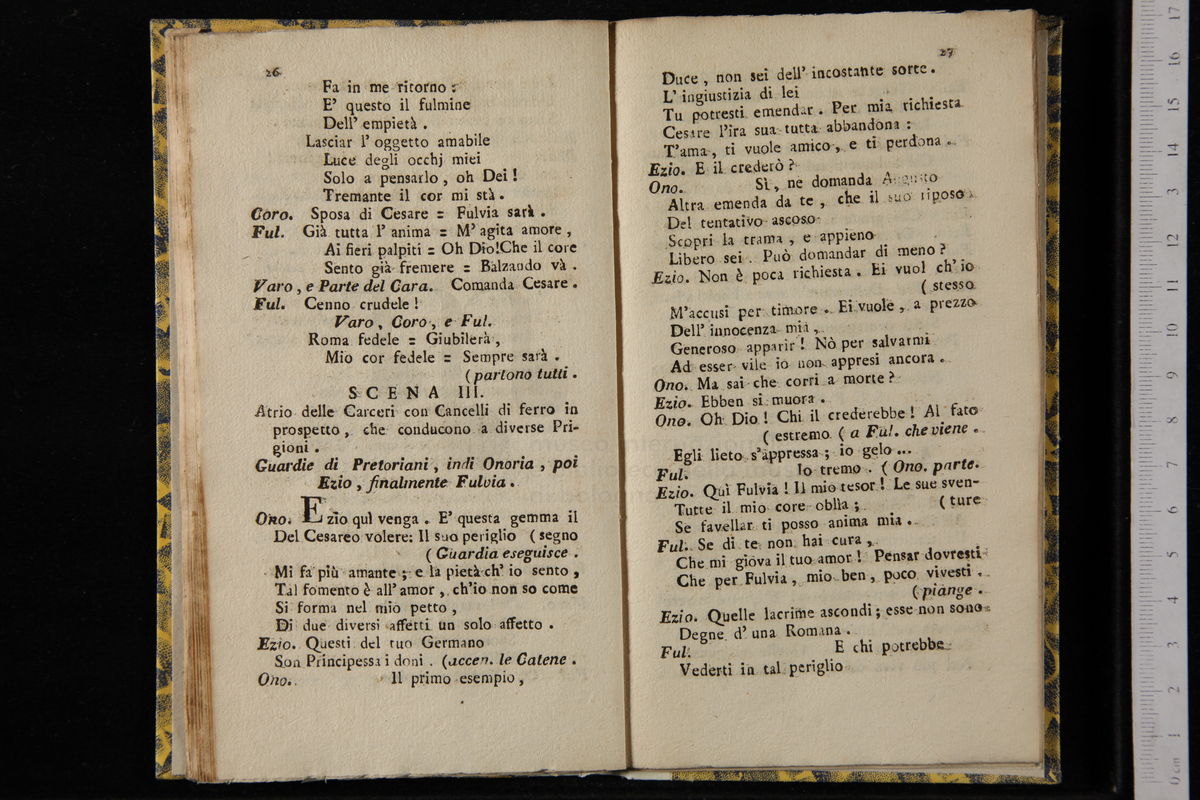 26
Fa in me ritorno :
E' questo il fulmine
Dell' empietà .
Lasciar l' oggetto amabile
Luce degli occhj miei
Solo a pensarlo , oh Dei !
Tremante il cor mi stà .
Coro. Sposa di Cesare = Fulvia sarà .
Ful. Già tutta l' anima = M' agita amore ,
Ai fieri palpiti = Oh Dio!Che il core
Sento già fremere = Balzando và .
Varo , e Parte del Cara. Comanda Cesare .
Ful. Cenno crudele !
Varo , Coro , e Ful.
Roma fedele = Giubilerà ,
Mio cor fedele = Sempre sarà .
( partono tutti .
SCENA III.
Atrio delle Carceri con Cancelli di ferro in
prospetto , che conducono a diverse Pri-
gioni .
Guardie di Pretoriani , indi Onoria , poi
Ezio , finalmente Fulvia .
Ono. Ezio quì venga . E' questa gemma il
Del Cesareo volere: Il suo periglio ( segno
( Guardia eseguisce .
Mi fa più amante ; e la pietà ch' io sento ,
Tal fomento è all' amor , ch'io non so come
Si forma nel mio petto ,
Di due diversi affetti un solo affetto .
Ezio. Questi del tuo Germano
Son Principessa i doni . (accen. le Catene .
Ono. Il primo esempio ,
27
Duce , non sei dell' incostante sorte .
L' ingiustizia di lei
Tu potresti emendar . Per mia richiesta
Cesare l'ira sua tutta abbandona :
T'ama , ti vuole amico , e ti perdona .
Ezio. E il crederò ?
Ono. Sì , ne domanda Augusto
Altra emenda da te , che il suo riposo .
Del tentativo ascoso
Scopri la trama , e appieno
Libero sei . Può domandar di meno ?
Ezio. Non è poca richiesta . Ei vuol ch' io
( stesso
M'accusi per timore . Ei vuole , a prezzo
Dell' innocenza mia ,
Generoso apparir ! Nò per salvarmi
Ad esser vile io non appresi ancora .
Ono. Ma sai che corri a morte ?
Ezio. Ebben si muora .
Ono. Oh Dio ! Chi il crederebbe ! Al fato
( estremo ( a Ful. che viene .
Egli lieto s'appressa ; io gelo ...
Ful. Io tremo . ( Ono. parte.
Ezio. Quì Fulvia ! Il mio tesor ! Le sue sven-
Tutte il mio core oblìa ; ( ture
Se favellar ti posso anima mia .
Ful. Se di te non hai cura ,
Che mi giova il tuo amor ! Pensar dovresti
Che per Fulvia , mio ben , poco vivesti .
( piange .
Ezio. Quelle lacrime ascondi ; esse non sono
Degne d' una Romana .
Ful. E chi potrebbe
Vederti in tal periglio